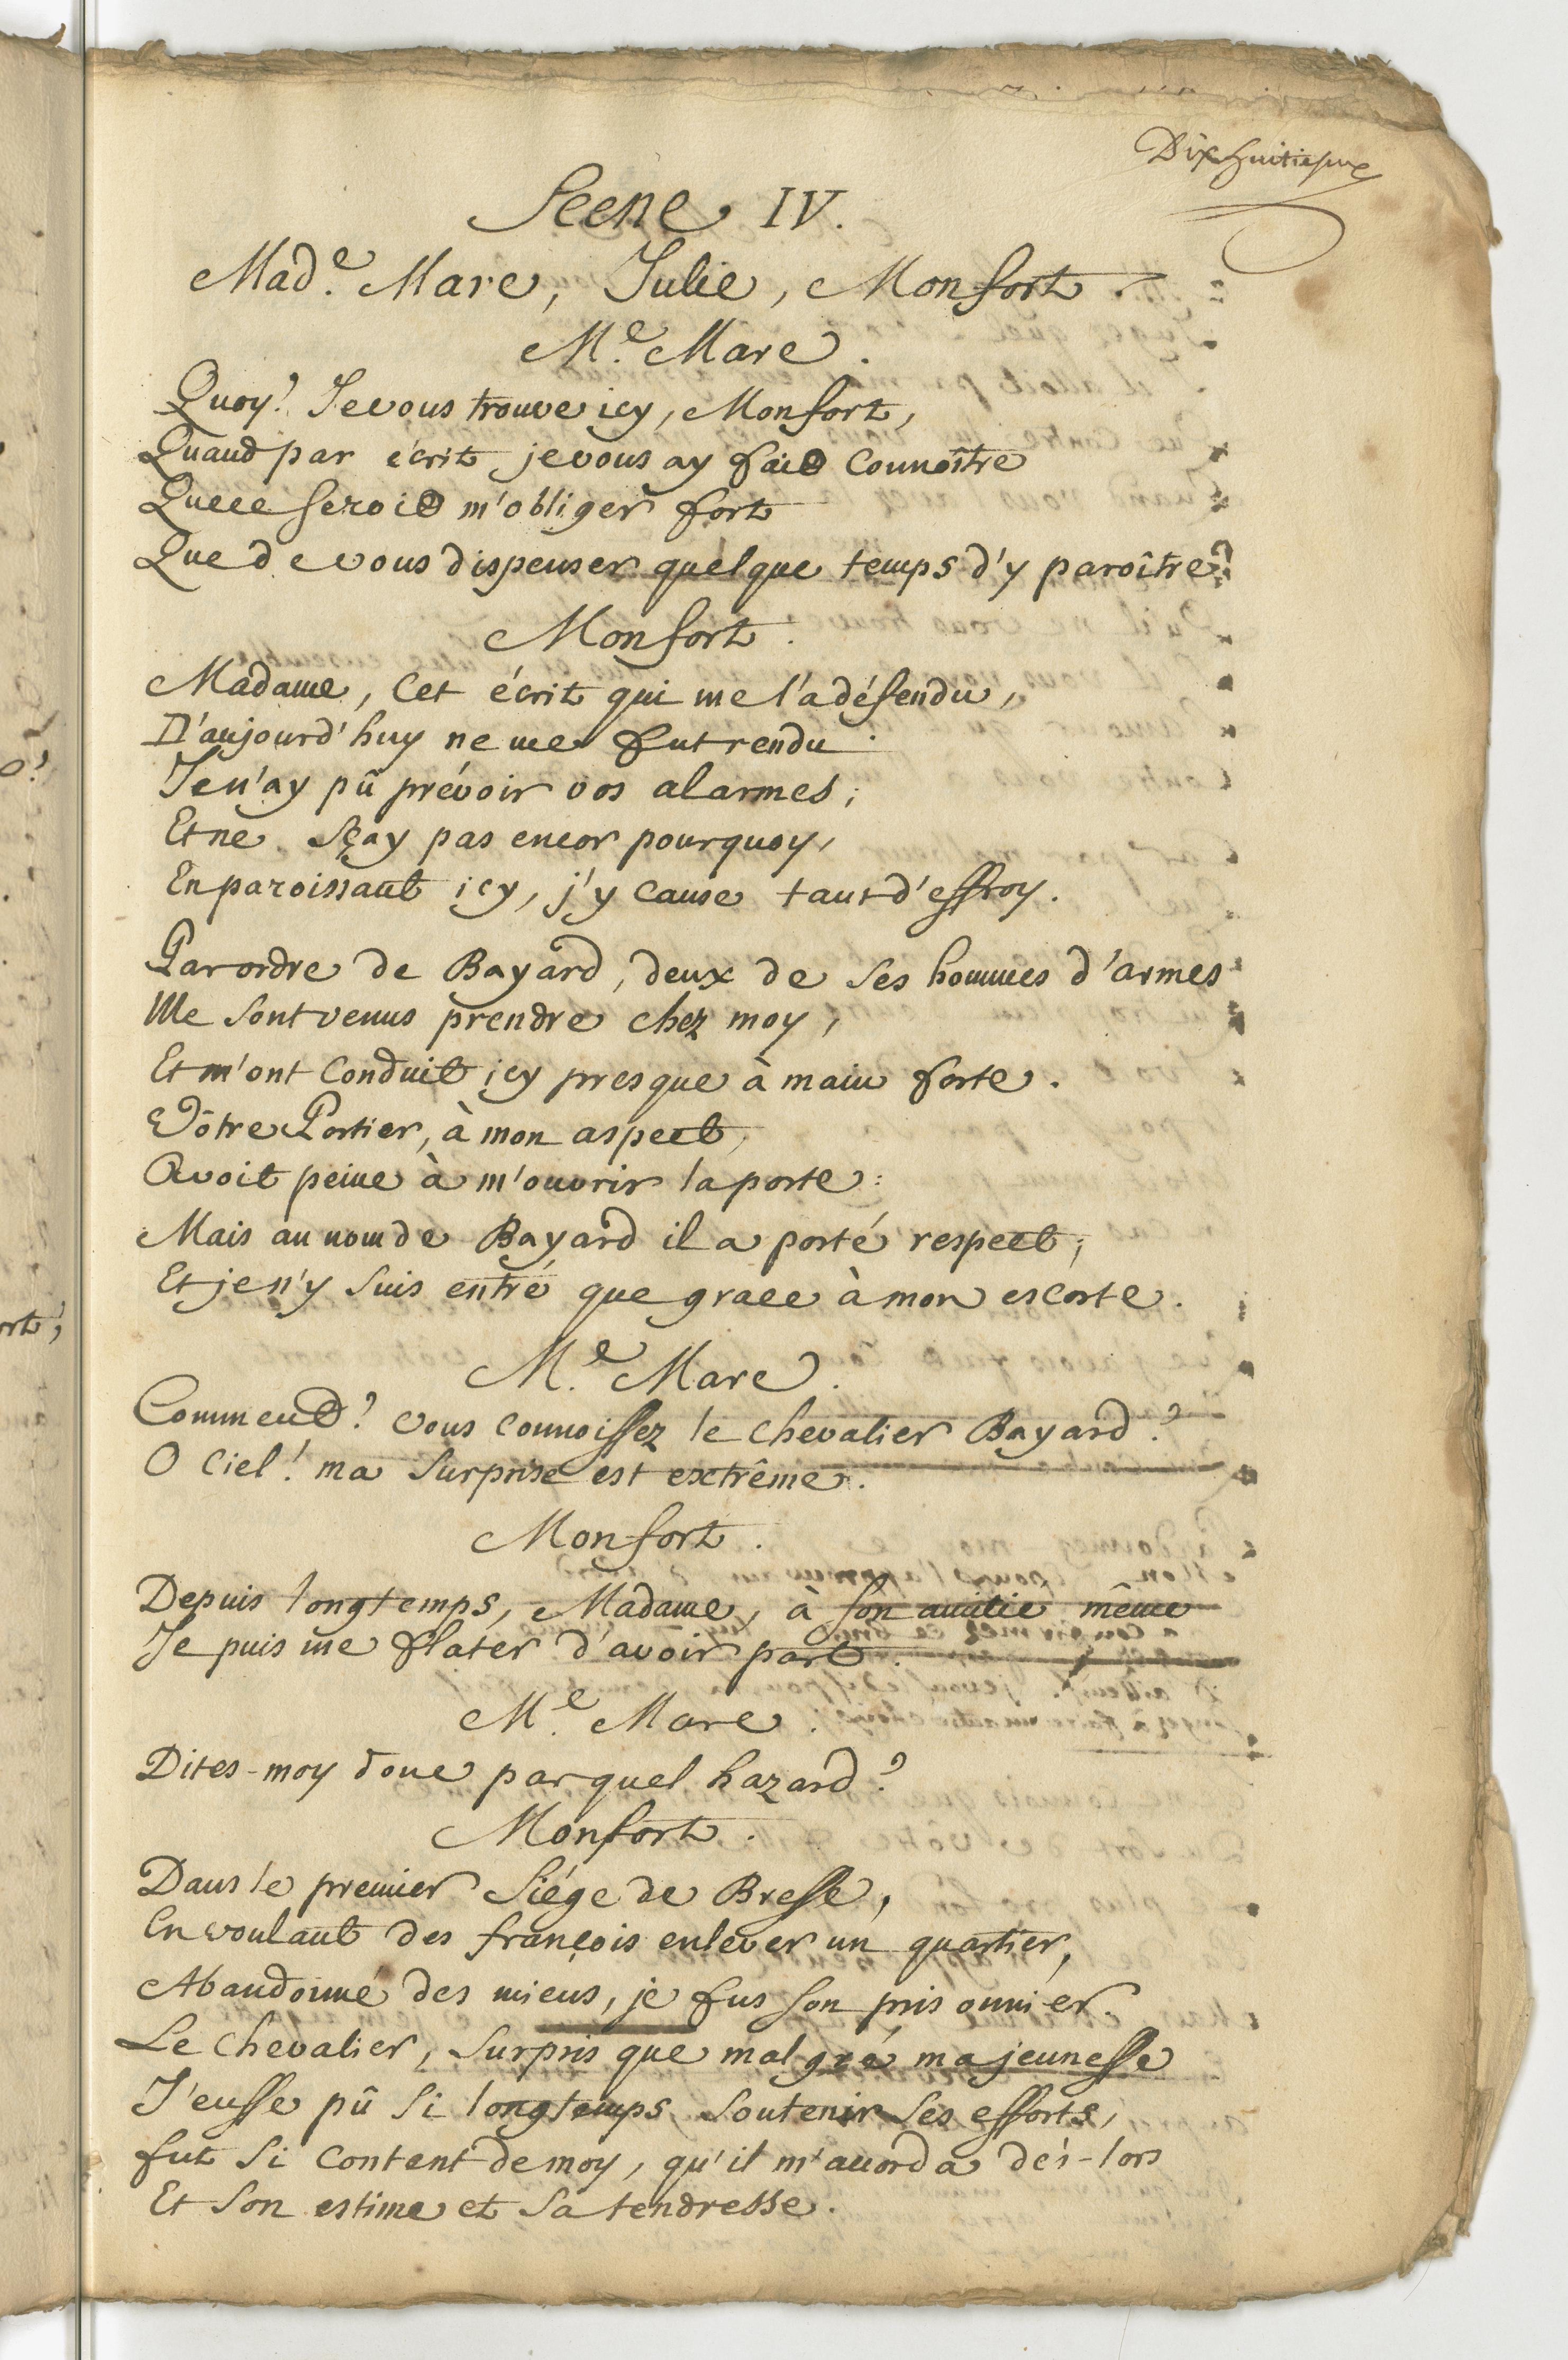 Dixhuitiesme
Scene IV.
Made. Mare, Julie, Monfort.
Me. Mare.
Quoy! Je vous trouve icy, Monfort,
Quand par écrit je vous ay fait Connoître
Que ce seroit m'obliger fort
Que de vous dispenser quelque temps d'y paroître?
Monfort.
Madame, Cet écrit qui me l'a défendu,
D'aujourd'huy ne me fut rendu.
Je n'ay pû prévoir vos alarmes;
Et ne sçay pas encor pourquoy,
En paroissant icy, j'y cause tant d'effroy.
Par ordre de Bayard, deux de ses hommes d'armes
Me sont venus prendre chez moy,
Et m'ont Conduit icy presque à main forte.
Vôtre Portier, à mon aspect,
Avoit peine à m'ouvrir la porte:
Mais au nom de Bayard il a porté respect;
Et je n'y suis entré que grace à mon escorte.
Me. Mare.
Comment? vous connoissez le chevalier Bayard?
O Ciel! ma surprise est extrême.
Monfort.
Depuis longtemps, Madame, à son amitié même
Je puis me flater d'avoir part.
Me. Mare.
Dites-moy donc par quel hazard?
Monfort.
Dans le premier Siége de Bresse,
En voulant des françois enlever un quartier,
Abandonné des miens, je fus son prisonnier.
Le chevalier, surpris que malgré ma jeunesse
J'eusse pû si longtemps soutenir ses efforts,
fut si Content de moy, qu'il m'accorda dés-lors
Et son estime et sa tendresse.